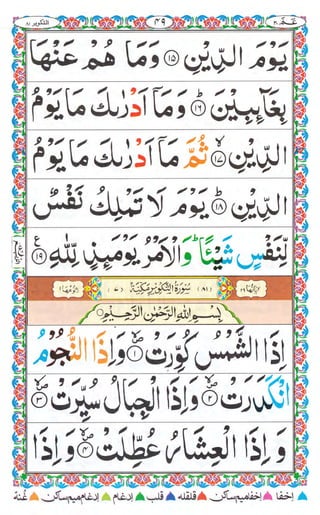 عمّ ٣٠ ٤٩ التكوير ٨١
يَوْمَ الدِّيْنِ ١٥ وَمَا هُمْ عَنْهَا
بِغَآئِبِيْنَ ١٦ وَمَآ اَدْرٰىكَ مَا يَوْمُ
الدِّيْنِ ١٧ ثُمَّ مَآ اَدْرٰىكَ مَا يَوْمُ
الدِّيْنِ ١٨ يَوْمَ لَا تَمْلِكُ نَفْسٌ
لِّنَفْسٍ شَيْئًا وَالْاَمْرُ يَوْمَئِذٍ لِّلّٰهِ ١٩
(٨١) سُوْرَةُ التَّكْوِيْرِ مَكِّيَّةٌ (٧)
بِسْمِ اللّٰهِ الرَّحْمٰنِ الرَّحِيْمِ
اِذَا الشَّمْسُ كُوِّرَتْ ١ وَاِذَا النُّجُوْمُ
انْكَدَرَتْ ٢ وَاِذَا الْجِبَالُ سُيِّرَتْ ٣
وَاِذَا الْعِشَارُ عُطِّلَتْ ٤ وَاِذَا
اخفا اخفا میم ساکن قلقله قلب ادغام ادغام میم ساکن غنة